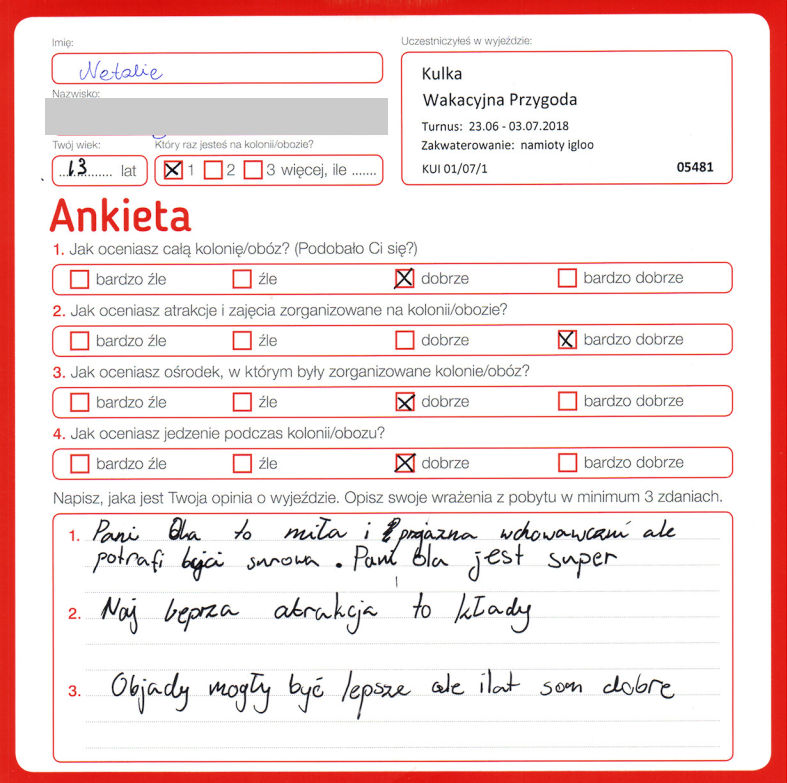 Imię:
Uczestniczyłeś w wyjeździe:
Natalie
Kulka
Wakacyjna Przygoda
Nazwisko:
Turnus: 23.06 - 03.07.2018
Zakwaterowanie: namioty igloo
KUI 01/07/1 05481
Twój wiek:
Który raz jesteś na kolonii/obozie?
13 lat
1 2 3 więcej, ile .......
Ankieta
1. Jak oceniasz całą kolonię/obóz? (Podobało Ci się?)
bardzo źle źle dobrze bardzo dobrze
2. Jak oceniasz atrakcje i zajęcia zorganizowane na kolonii/obozie?
bardzo źle źle dobrze bardzo dobrze
3. Jak oceniasz ośrodek, w którym były zorganizowane kolonie/obóz?
bardzo źle źle dobrze bardzo dobrze
4. Jak oceniasz jedzenie podczas kolonii/obozu?
bardzo źle źle dobrze bardzo dobrze
Napisz, jaka jest Twoja opinia o wyjeździe. Opisz swoje wrażenia z pobytu w minimum 3 zdaniach.
1. Pani Ola to miła i prjazna wchowawczni ale
potrafi surowa. Pani Ola jest super
2. Naj leprza atrakcja to kłady
3. Objady mogły być lepsze ale i tat som dobre